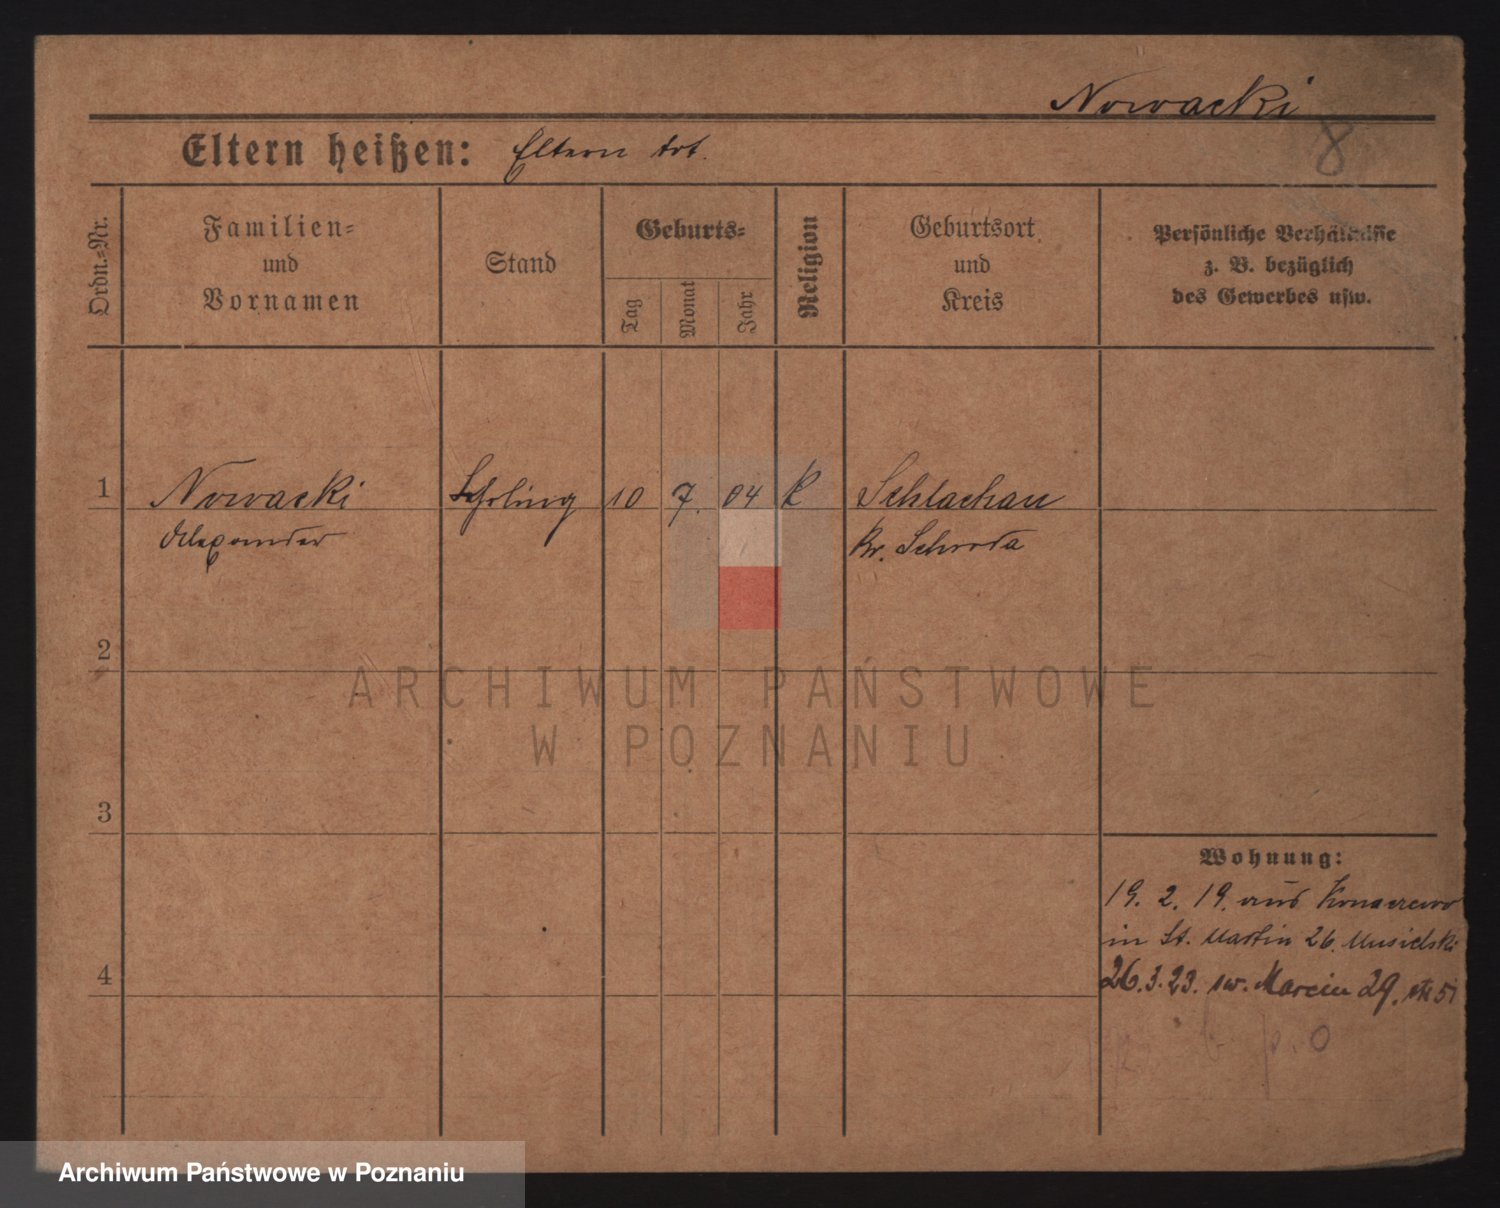 Nowacki
8
Eltern heißen: Eltern tot.
Ordn.-Nr.
Familien=
und
Vornamen
Stand
Geburts=
Tag
Monat
Jahr
Religion
Geburtsort
und
Kreis
Persönliche Verhältnisse
z. B. bezüglich
des Gewerbes usw.
1 Nowacki Lehrling 10 7. 04 k Schlachau
Alexander Kr. Schroda
2
ARCHIWUM PAŃSTWOWE
W POZNANIU
3
Wohnung:
19. 2. 19. aus
in St. Martin 26. Musielski
4
26.3.23. sw. Marcin 29.
p. 0
Archiwum Państwowe w Poznaniu